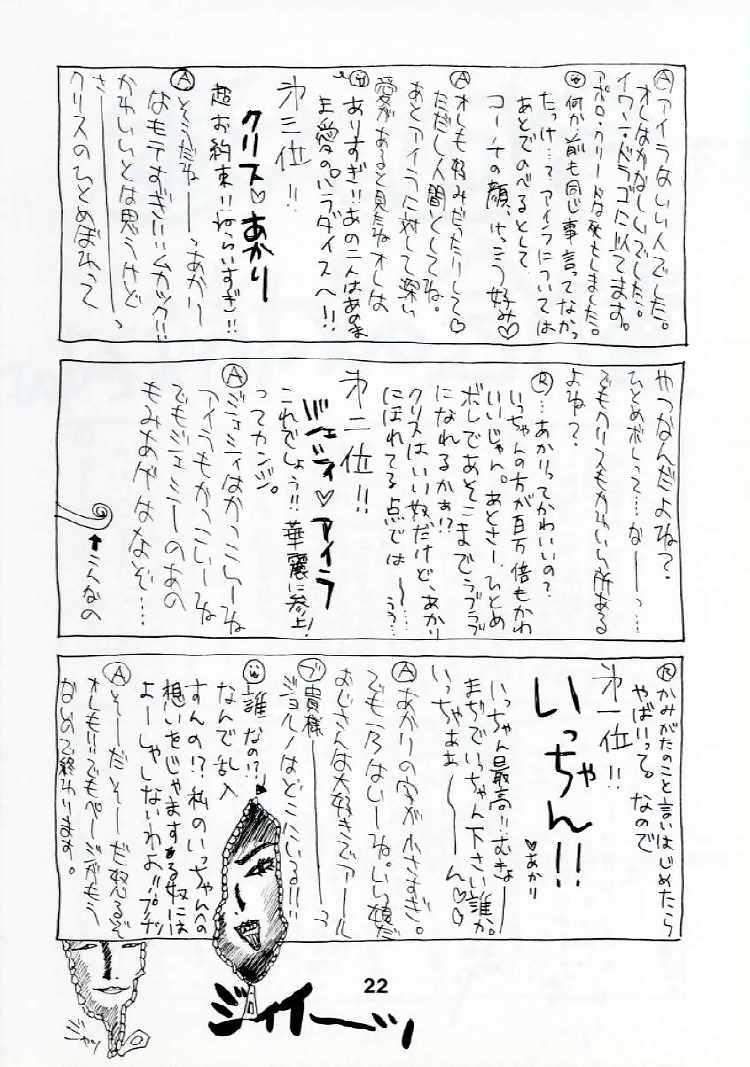 Ⓐアイラはいい人でした。
オレはかなしいでした。
イワン・ドラゴに似てます。
アポロ・クリードは死もしました。
何か前も同じ事言ってなかっ
たっけ…?アイラについては
あとでのべるとして
コーチの顔、けっこう好み♡
Ⓐオレも好みだったりして♡
ただし人間としてね。
あとアイラに対して深い
愛があると見たねオレは
ありすぎ!!あの二人はあのまま
愛のパラダイスへ!!
第三位!!
クリス♡あかり
超お約束!!ねらいすぎ!!
Ⓐそうだねーっあかり
なもテすぎ!!ムカック!!
かわいいとは思うけど
さ―――っ
クリスのひとめぼれって
やつなんだよね?
ひとめボレって…なーっ…
でもクリスもかわいい所ある
よね?
Ⓡ…あかりってかわいいの?
いっちゃんの方が百万倍もかわ
いいじゃん。あとさー、ひとめ
ボレであそこまでラブラブ
になれるかぁ!?
クリスはいい奴だけど、あかり
にほれてる点では〜〜…うう…
第二位!!
ジェシィ♡アイラ
これでしょう!!華麗に参上!
ってカンジ。
Ⓐジェシィはかっこいーね
アイラもかっこいーね
でもジェシーのあの
もみあげはなぞ…
↑こんなの
Ⓡかみがたのこと言いはじめたら
やばいって。なので
第一位!!
いっちゃん!!
♡あかり
いっちゃん最高!!むきょー
まぢでいっちゃん下さい誰か。
いっちゃぁぁ〜〜ん♡♡
Ⓐあかりの字が小さすぎ。
でも乃はいーね。いい娘だ
おじさんは大好きでアール
ブ貴様―――っ
ジョルノはどこにいる!!
誰なの!?
なんで乱入
すんの!?私のいっちゃんへの
想いをじゃまする奴には
よーしゃしないわよ!!プンプン
Ⓐそーだそーだ怒るぞ
オレも!!でもページがもう
ないので終わります。
ジャッ
ジィイーッ
22